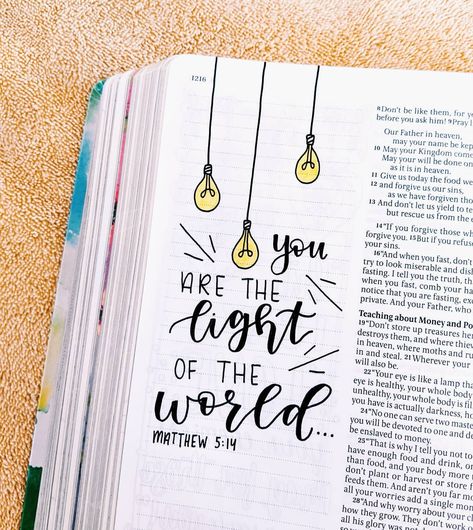 1216
You
ARE THE
light
OF THE
world...
MATTHEW 5:14
8Don't be like them, for
before you ask him! 9Pray
Our Father in heaven,
may your name be
10 May your Kingdom come
May your will be done on
as it is in heaven.
11 Give us today the food we
12 and forgive us our sins,
as we have forgiven
13 And don't let us yield to
but rescue us from the
14"If you forgive those
forgive you. 15But if you refuse
your sins.
16"And when you fast, don't
try to look miserable and
fasting. I tell you the truth,
when you fast, comb your
notice that you are fasting,
private. And your Father, who
Teaching about Money and
19"Don't store up treasures
destroys them, and where
in heaven, where moths and
in and steal. 21Wherever your
will also be.
22"Your eye is like a lamp
eye is healthy, your whole body
unhealthy, your whole body is
you have is actually darkness,
24"No one can serve two
you will be devoted to one and
be enslaved to money.
25"That is why I tell you not to
have enough food and drink,
than food, and your body more
don't plant or harvest or store
feeds them. And aren't you far
all your worries add a single
28"And why worry about your
how they grow. They don't work